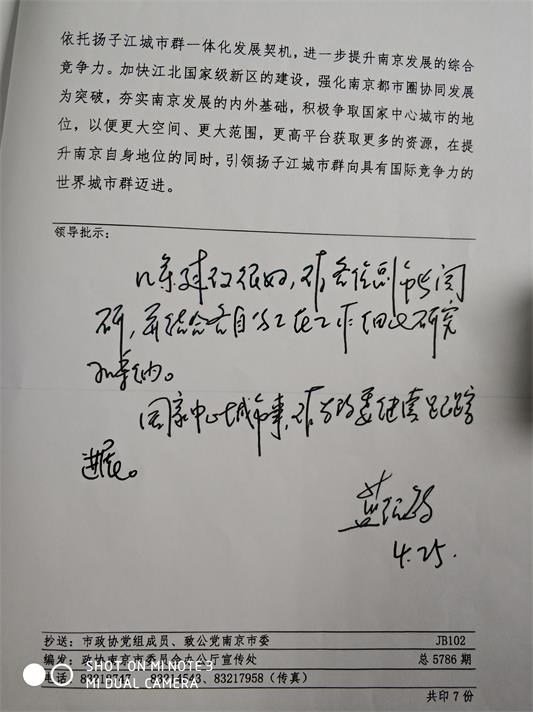 依托扬子江城市群一体化发展契机，进一步提升南京发展的综合
竞争力。加快江北国家级新区的建设，强化南京都市圈协同发展
为突破，夯实南京发展的内外基础，积极争取国家中心城市的地
位，以便更大空间、更大范围，更高平台获取更多的资源，在提
升南京自身地位的同时，引领扬子江城市群向具有国际竞争力的
世界城市群迈进。
领导批示：
几条建议很好，请各位副市长阅
研，并结合各自分工在工作中研究
和采纳。
国家中心城市事，请发改委继续跟踪
进展。
4.25.
抄送：市政协党组成员、致公党南京市委 JB102
编发：政协南京市委员会办公厅宣传处 总 5786 期
电话： 83217958（传真）
共印 7 份
SHOT ON MI NOTE 3
MI DUAL CAMERA